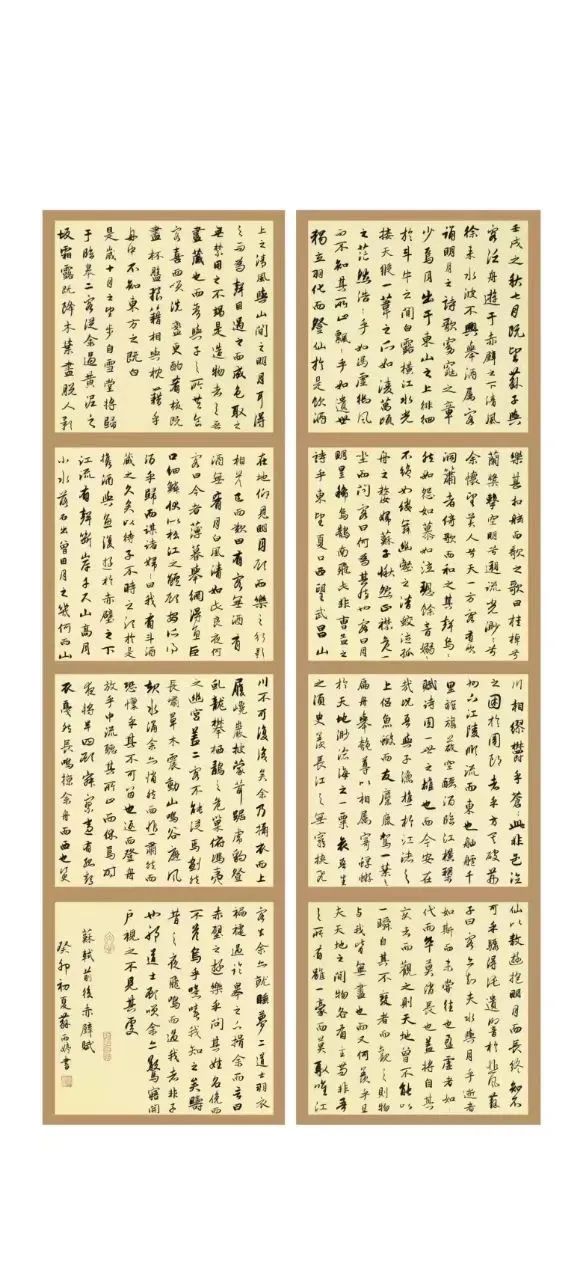 壬戌之秋七月既望蘇子與
客泛舟遊于赤壁之下清風
徐來水波不興舉酒屬客
誦明月之詩歌窈窕之章
少焉月出于東山之上徘徊
於斗牛之間白露橫江水光
接天縱一葦之所如凌萬頃
之茫然浩浩乎如馮虛御風
而不知其所止飄飄乎如遺世
獨立羽化而登仙於是飲酒
樂甚扣舷而歌之歌曰桂棹兮
蘭槳擊空明兮溯流光渺渺兮
余懷望美人兮天一方客有吹
洞簫者倚歌而和之其聲嗚嗚
然如怨如慕如泣如訴餘音嫋嫋
不絕如縷舞幽壑之潛蛟泣孤
舟之嫠婦蘇子愀然正襟危
坐而問客曰何為其然也客曰月
明星稀烏鵲南飛此非曹孟德之
詩乎東望夏口西望武昌山
川相繆鬱乎蒼蒼此非孟德
之困於周郎者乎方其破荊
州下江陵順流而東也舳艫千
里旌旗蔽空釃酒臨江橫槊
賦詩固一世之雄也而今安在
哉況吾與子漁樵於江渚之
上侶魚蝦而友麋鹿駕一葉之
扁舟舉匏尊以相屬寄蜉蝣
於天地渺滄海之一粟哀吾生
之須臾羨長江之無窮挾飛
仙以遨遊抱明月而長終知不
可乎驟得託遺響於悲風蘇
子曰客亦知夫水與月乎逝者
如斯而未嘗往也盈虛者如
代而卒莫消長也蓋將自其
變者而觀之則天地曾不能以
一瞬自其不變者而觀之則物
与我皆無盡也而又何羨乎且
夫天地之間物各有主苟非吾
之所有雖一毫而莫取唯江
上之清風與山間之明月耳得
之而為聲目遇之而成色取之
無禁用之不竭是造物者之無
盡藏也而吾與子之所共食
客喜而笑洗盞更酌肴核既
盡杯盤狼籍相與枕藉乎
舟中不知東方之既白
是歲十月之望步自雪堂將歸
于臨皋二客從余過黃泥之
坂霜露既降木葉盡脫人影
在地仰見明月顧而樂之行歌
相答已而歎曰有客無酒有
酒無肴月白風清如此良夜何
客曰今者薄暮舉網得魚巨
口細鱗狀似松江之鱸顧安所得
酒乎歸而謀諸婦婦曰我有斗酒
藏之久矣以待子不時之須於是
攜酒與魚復遊於赤壁之下
江流有聲斷岸千尺山高月
小水落石出曾日月之幾何而山
川不可復識矣余乃攝衣而上
履巉巖披蒙茸踞虎豹登
虬龍攀栖鶻之危巢俯馮夷
之幽宮蓋二客不能從焉劃然
長嘯草木震動山鳴谷應風
起水涌余亦悄然而悲肅然而
恐懍乎其不可留也反而登舟
放乎中流聽其所止而休焉時
夜將半四顧寂寥適有孤鶴
衣戛然長鳴掠余舟而西也須
客去余亦就睡夢二道士羽衣
蹁躚過臨皋之下揖余而言曰
赤壁之遊樂乎問其姓名俛而
不答嗚乎噫嘻我知之矣疇
昔之夜飛鳴而過我者非子
也耶道士顧笑余亦驚寤開
戶視之不見其處
蘇軾前後赤壁賦
癸卯初夏蘇西書